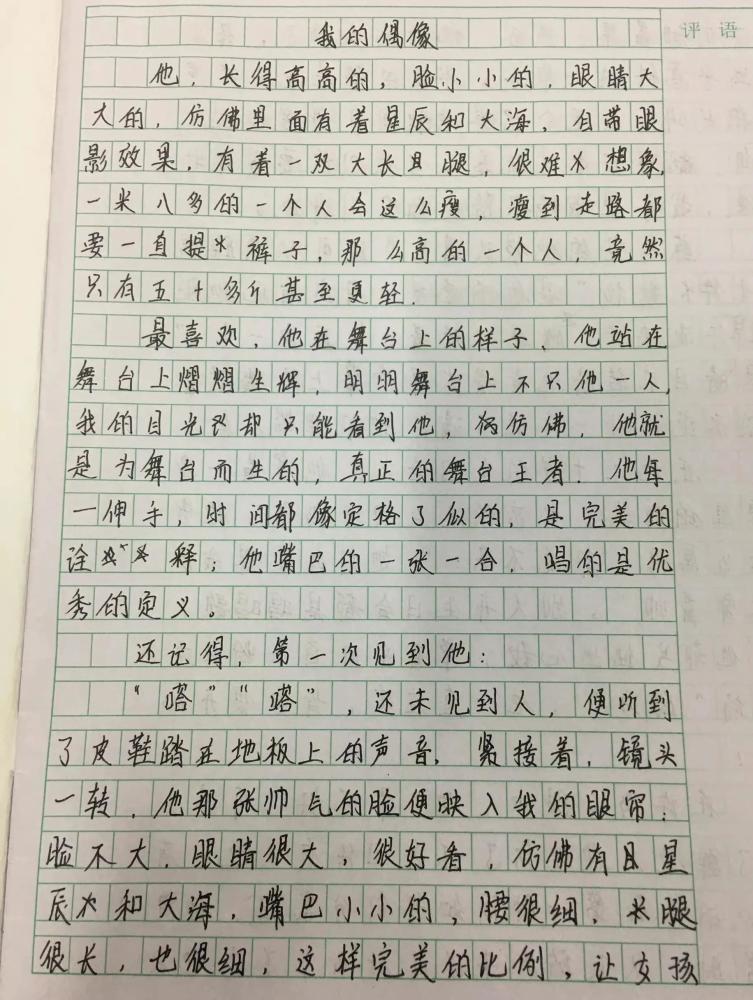 评语
我的偶像
他，长得高高的，脸小小的，眼睛大
大的，仿佛里面有着星辰和大海，自带眼
影效果，有着一双大长腿，很难想象，
一米八多的一个人会这么瘦，瘦到走路都
要一直提裤子，那么高的一个人，竟然
只有五十多斤甚至更轻．
最喜欢，他在舞台上的样子，他站在
舞台上熠熠生辉，明明舞台上不只他一人，
我的目光却只能看到他，仿佛，他就
是为舞台而生的，真正的舞台王者．他每
一伸手，时间都像定格了似的，是完美的
诠释；他嘴巴的一张一合，唱的是优
秀的定义。
还记得，第一次见到他：
“嗒”“嗒”，还未见到人，便听到
了皮鞋踏在地板上的声音．紧接着，镜头
一转，他那张帅气的脸便映入我的眼帘：
脸不大，眼睛很大，很好看，仿佛有星
辰和大海，嘴巴小小的，腰很细，长腿
很长，也很细，这样完美的比例，让女孩